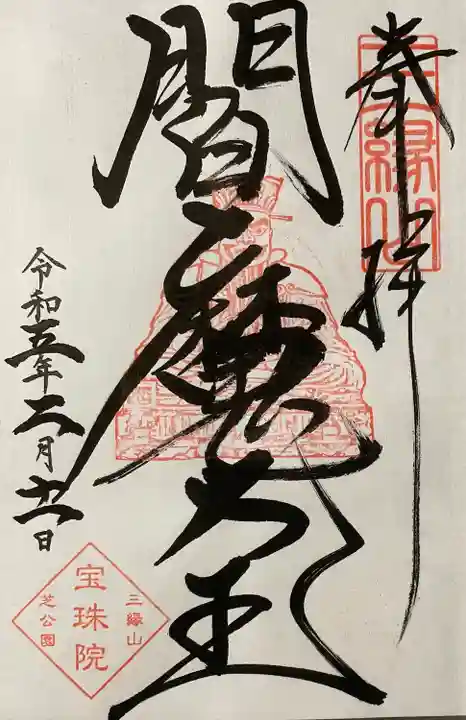 奉拝
三縁山
閻魔大王
令和五年二月十一日
三縁山
宝珠院
芝公園